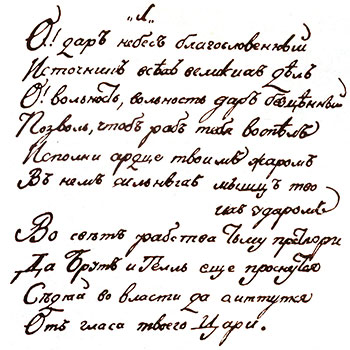 „1“
О! даръ небесъ благословенный
Источникъ всѣхъ великихъ дѣлъ
О! вольность, вольность даръ безцѣнный
Позволь, чтобъ рабъ тебя воспѣлъ
Исполни сердце твоимъ жаромъ
Въ немъ сильныхъ мышцъ тво
ихъ ударомъ
Во свѣтъ рабства тьму претвори
Да Брутъ и Телль еще проснутся
Сѣдяй во власти да смятутся
Отъ гласа твоего Цари.